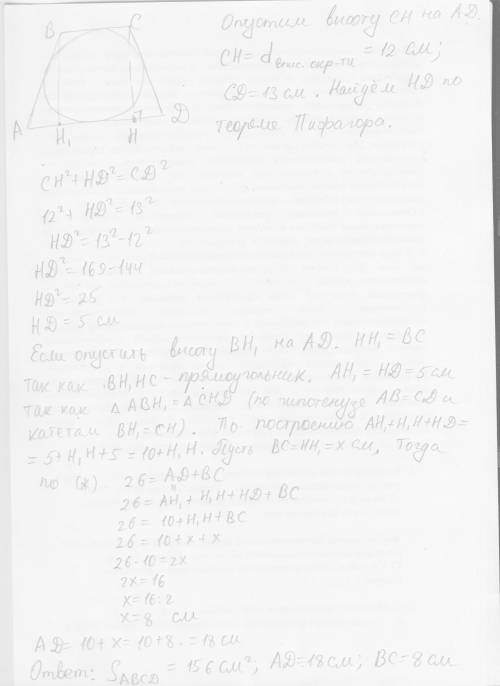 Опустим высоту CH на AD.
CH = d впис. окр-ти = 12 см;
CD = 13 см. Найдём HD по
теореме Пифагора.
B C
A H₁ H D
CH² + HD² = CD²
12² + HD² = 13²
HD² = 13² - 12²
HD² = 169 - 144
HD² = 25
HD = 5 см
Если опустить высоту BH₁ на AD. HH₁ = BC
так как BH₁HC - прямоугольник. AH₁ = HD = 5 см
так как △ABH₁ = △CHD (по гипотенузе AB = CD и
катетам BH₁ = CH). По построению AH₁ + H₁H + HD =
= 5 + H₁H + 5 = 10 + H₁H. Пусть BC = HH₁ = x см. Тогда
по (*) 26 = AD + BC
26 = AH₁ + H₁H + HD + BC
26 = 10 + H₁H + BC
26 = 10 + x + x
26 - 10 = 2x
2x = 16
x = 16 : 2
x = 8 см
AD = 10 + x = 10 + 8 = 18 см
Ответ: S ABCD = 156 см²; AD = 18 см; BC = 8 см